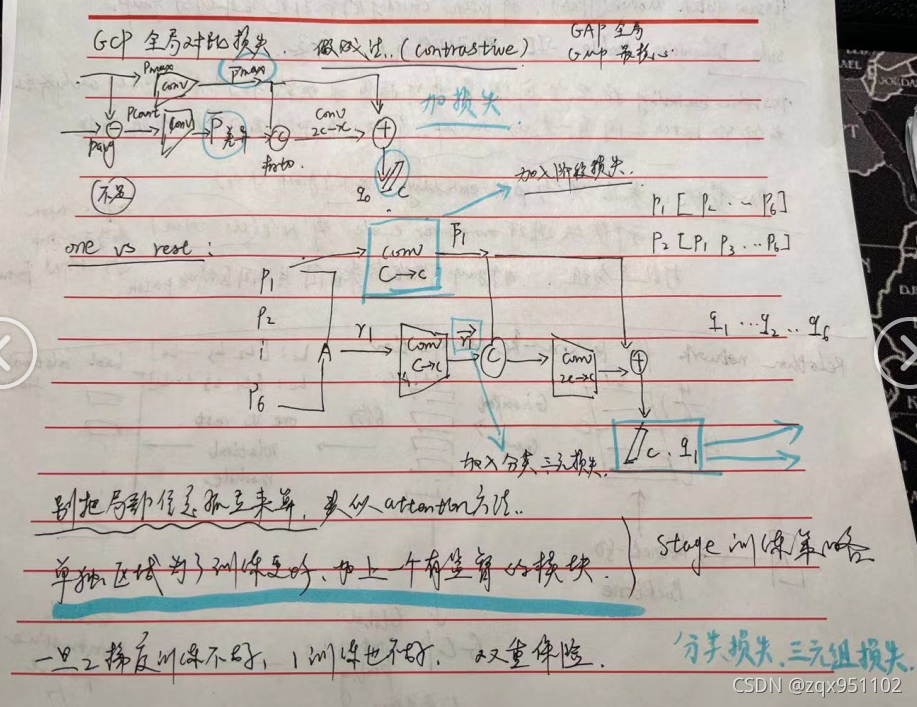 GCP 全局对比损失. 做减法..(contrastive)
GAP 全局
GMP 最核心
Pmax conv P̄max
Pavg Pcont conv P̄差异 C conv 2c→c
加损失
q0 C
不足
加入阶段损失.
P1 [P2 ... P6]
P2 [P1 P3 ... P6]
one vs rest:
conv C→c P̄1
P1
P2
P6
A r1 conv C→c r̄1 C conv 2c→c
q1 ... q2 .. q6
加入分类三元损失.
c. q1
别把局部信息孤立来算, 类似attention方法..
单独区域为了训练更好, 加上一个有监督的模块.
stage训练策略
一旦2梯度训练不好, 1训练也不好. 双重保险.
分类损失.三元组损失.
CSDN @zqx951102